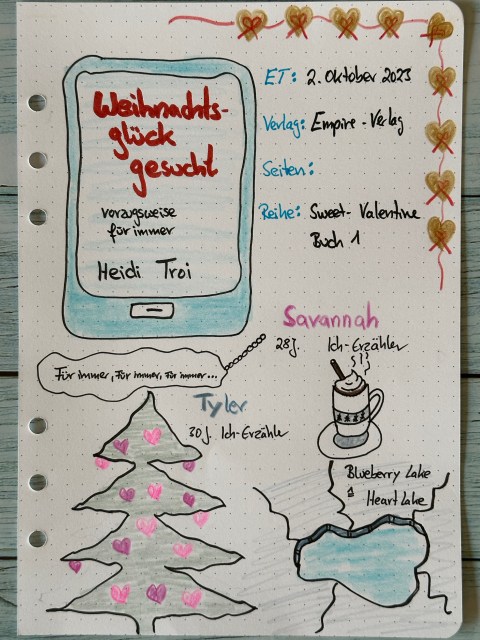 Weihnachts-
glück
gesucht
vorzugsweise
für immer
Heidi Troi
ET: 2. Oktober 2023
Verlag: Empire-Verlag
Seiten:
Reihe: Sweet-Valentine
Buch 1
Savannah
28J. Ich-Erzähler
Für immer, Für immer, Für immer...
Tyler
30J. Ich-Erzähler
Blueberry Lake
Heart Lake